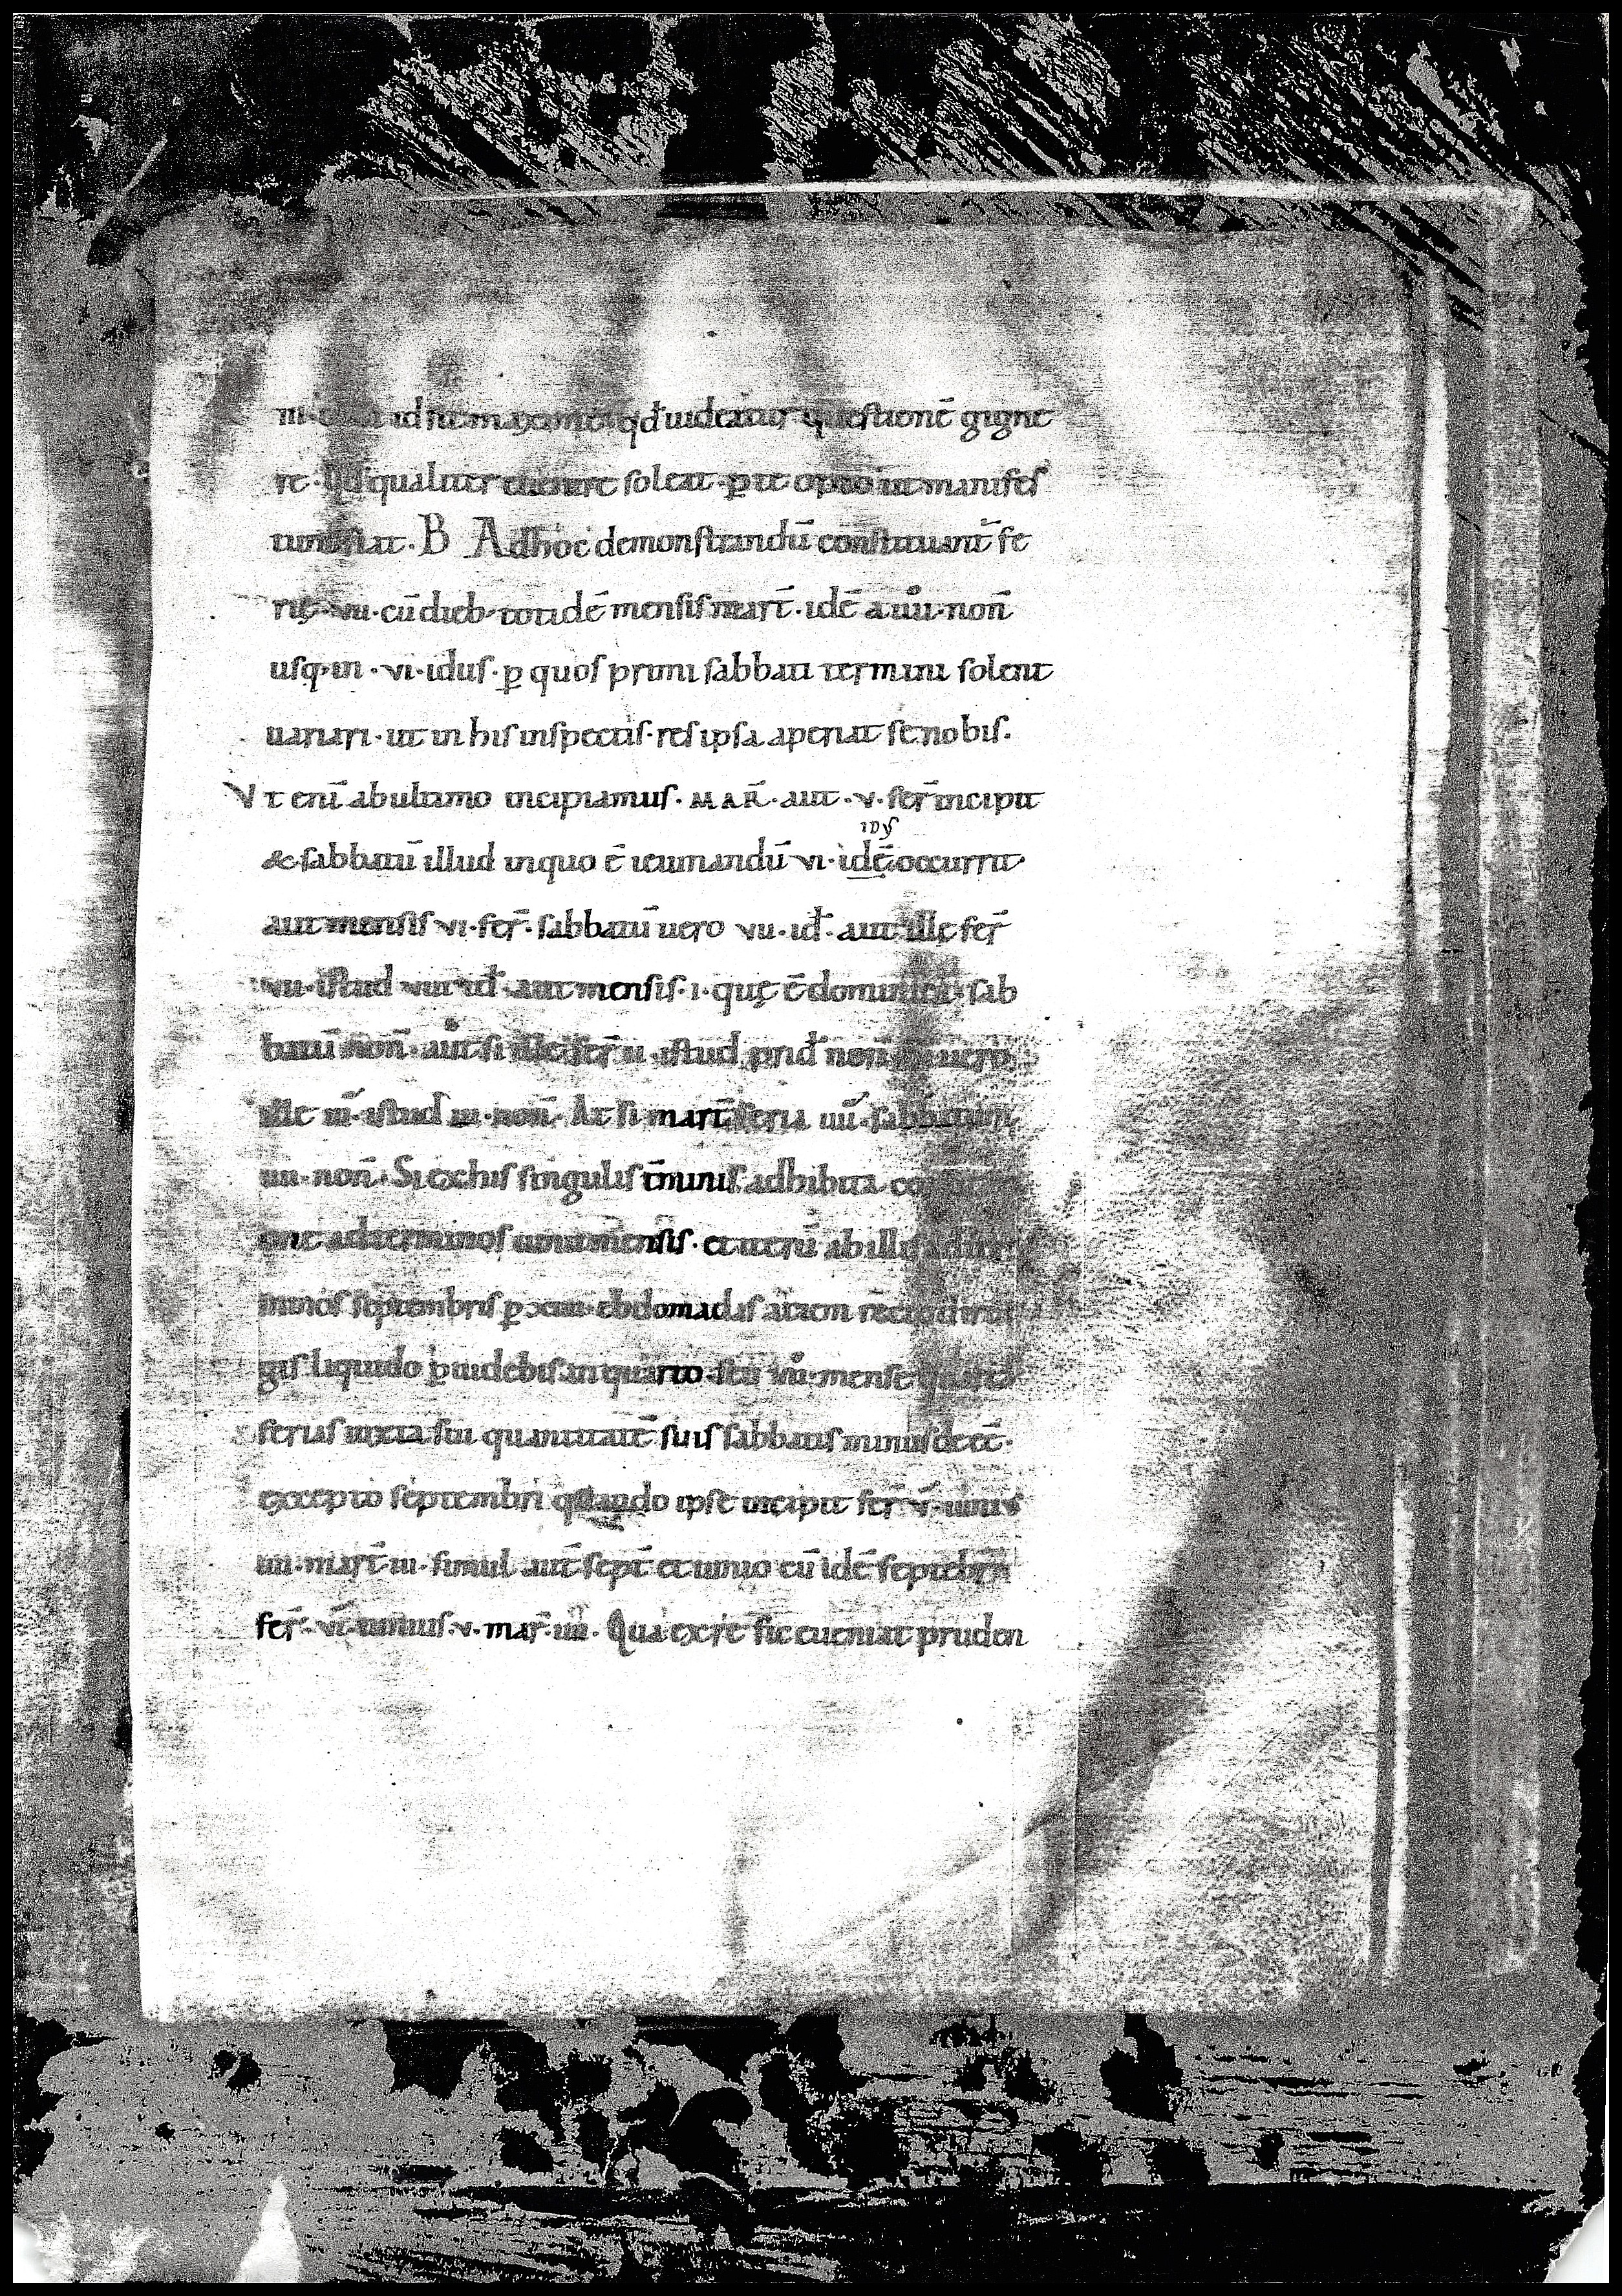 id ut maxime qđ uideatur questionē gigne
re. Qđ qualiter euenire soleat. p̱ te opto ut manifes
tum fiat. B Ad hoc demonstrandū constituant̄ fe
rię. vii. cū dieb; totidē mensis mart̄. idē a uii. non̄
usq; in. vi. idus. p̱ quos primi sabbati termini solent
uariari. ut in his inspectis. res ipsa aperiat se nobis.
Vt enī ab ultimo incipiamus. MAR̄. aut. v. fer̄ incipit
& sabbatū illud in quo ē ieiunandū vi. idē occurrit
idus
aut mensis vi. fer̄. sabbatū uero vii. id. aut ille fer̄
vii. istud viii id. aut mensis. i. quę ē dominica. sab
batū non̄. aut si ille fer̄ ii. istud prid non̄ uero
ille iii. istud iii. non̄. At si mart̄ feria iiii. sabbatum
iiii. non̄. Si ex his singulis t̄minis adhibita
one ad terminos iunii mensis. et iterū ab illis ad ter
minos septembris p̱ xiiii. ebdomadas aciem recto
gis liquido p̱uidebis in quarto seu mense
ferias iuxta sui quantitatē suis sabbatis minus deēē.
excepto septembri quando ipse incipit fer̄ v. iunius
iiii. mart̄ iii. simul aut sept̄ et iunio cū idē septebr̄
fer̄. vi. iunius. v. mar̄. iiii. Qua ex re sic eueniat pruden